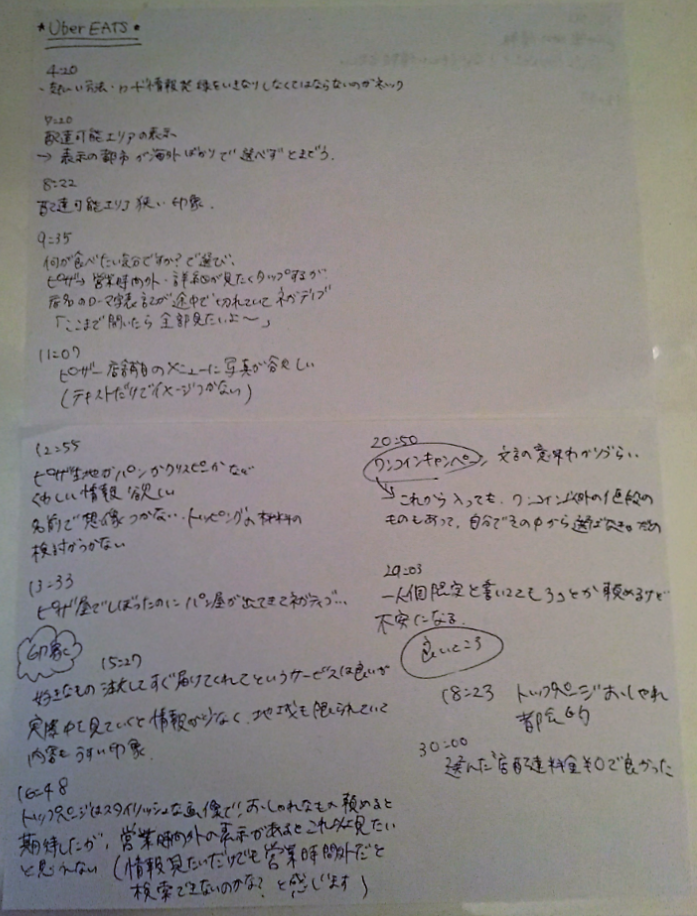 * Uber EATS *
4:20
・支払い方法・カード情報登録をいきなりしなくてはならないのがネック
7:20
配達可能エリアの表示
→ 表示の都市が海外ばかりで選べずとまどう.
8:22
配達可能エリア狭い印象.
9:35
何が食べたい気分ですか?で選び、
ピザ→営業時間外・詳細が見たくタップするが
店名のローマ字表記が途中で切れていてネガティブ
「ここまで開いたら全部見たいよ〜」
11:07
ピザー店舗毎のメニューに写真が欲しい
(テキストだけでイメージつかない)
12:55
ピザ生地がパンかクリスピーかなど
くわしい情報欲しい
名前で想像つかない・トッピングの材料の
検討がつかない
13:33
ピザ屋でしぼったのにパン屋が出てきてネガティブ…
印象
15:27
好きなもの注文してすぐ届けてくれてというサービスは良いが
実際中を見ていくと情報が少なく、地域も限られていて
内容もうすい印象.
16:48
トップページはスタイリッシュな画像で、おしゃれなもの頼めると
期待したが、営業時間外の表示があるとこれ以上見たい
と思えない(情報見たいだけでも営業時間外だと
検索できないのかな?と感じます)
20:50
ワンコインキャンペーン 文言の意味わかりづらい
これから入っても、ワンコイン以外の値段の
ものもあって、自分でその中から選ばなきゃ
29:03
一人一個限定と書いてても3コとか頼めるけど
不安になる.
良いところ
18:23 トップページおしゃれ
都会的
30:00
選んだ店配達料金¥0で良かった